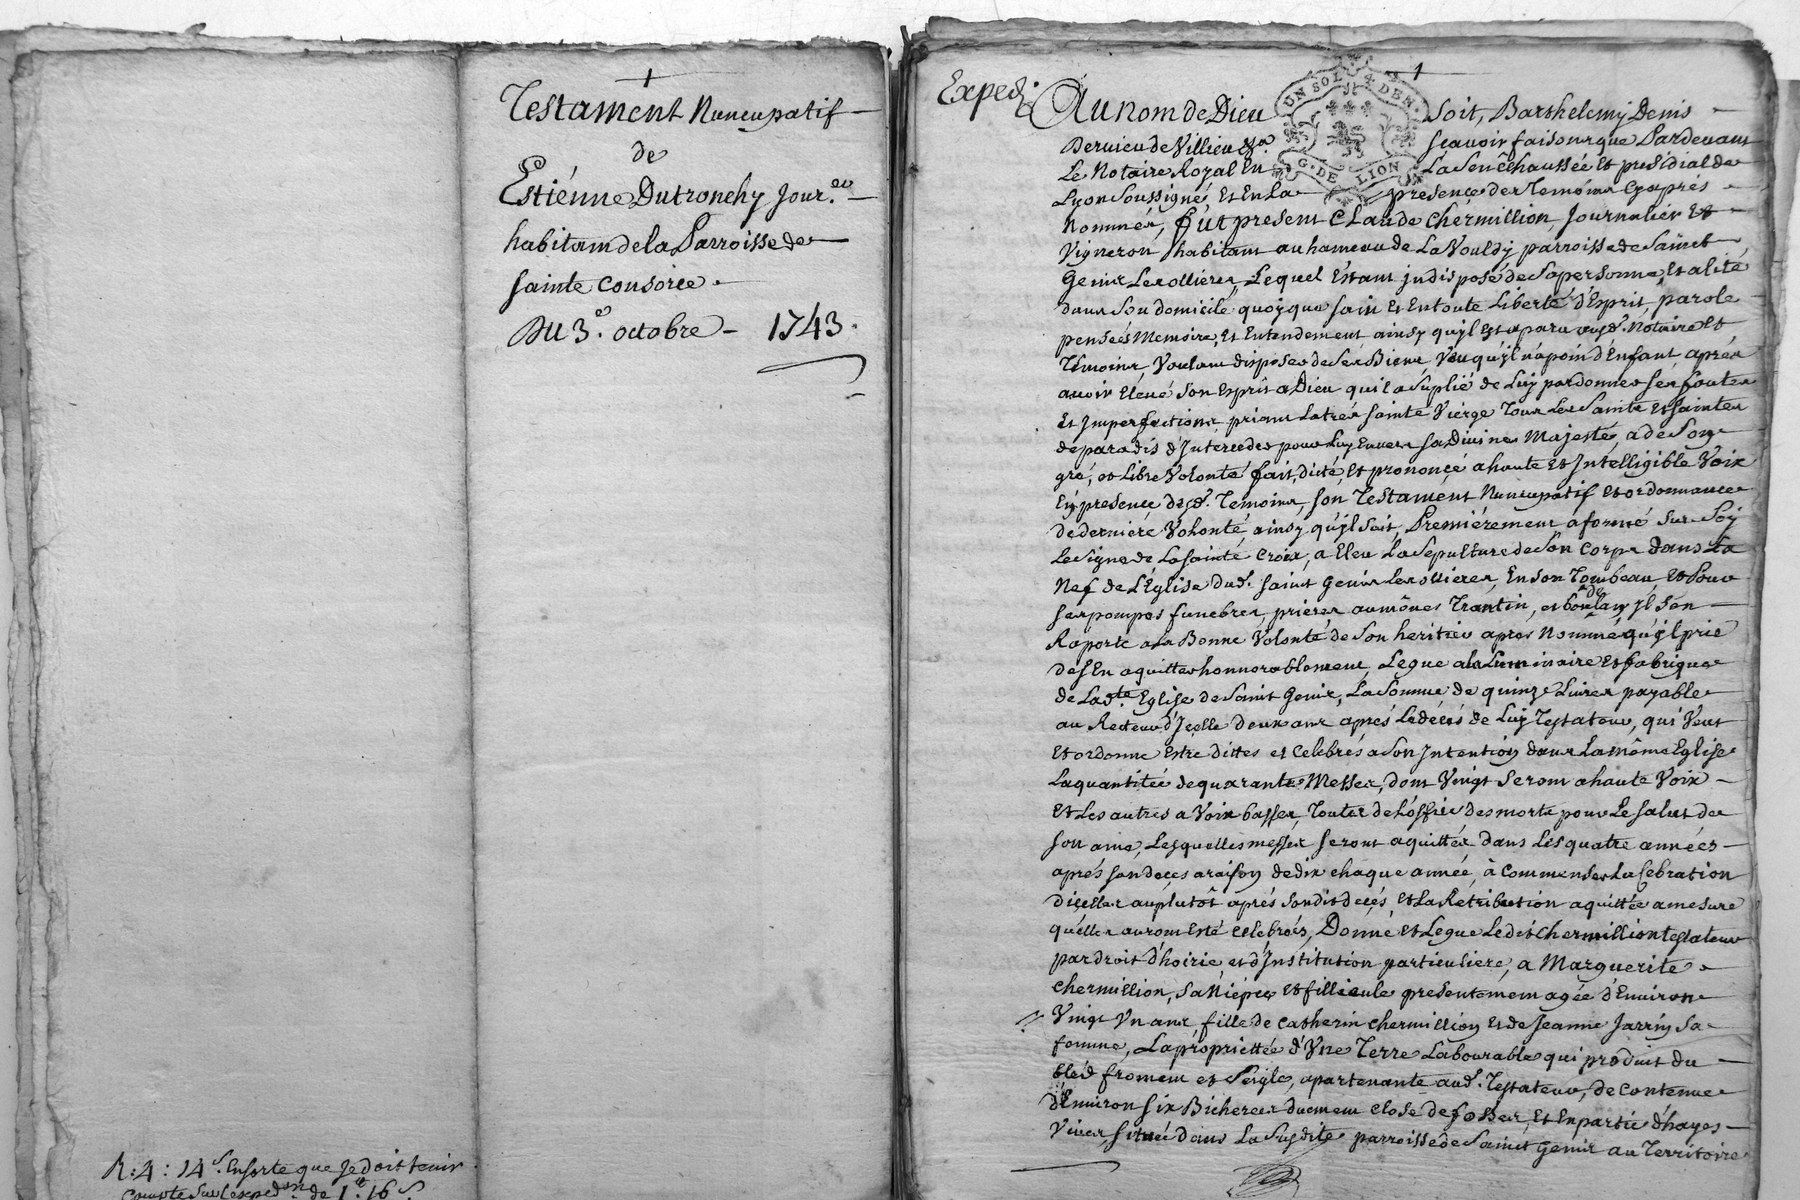 Testament Nuncupatif
de
Estiénne Dutronchy Jour.er
habitant de la Parroisse de
sainte Consorce.
Du 3.e octobre - 1743.
R: 4: 14 s. Ensorte que Je doit tenir
Compte sur l'exped.on de 1 16 s.
Exped.
UN SOL 4 DEN.
G. DE LION
Au nom de Dieu soit, Barthelemy Denis
Dervieu de Villieu scavoir faisons que Pardevant
Le Notaire Royal En La Senêchaussée et presidial de
Lyon Soussigné, Et En La presence des Temoins Cy aprés
Nommés, fut present Claude Chermillion, Journalier et
Vigneron, habitant au hameau de La Vouldy parroisse de Sainct
Genis Lesollieres, Lequel Estant indisposé de Sa personne, et alité
dans Son domicile quoyque sain et En toute Liberté d'Esprit, parole
pensées Memoire, Et Entendement ainsy quyl Est aparu auxd. Notaire et
Temoins, Voulant disposer de Ses Biens, Veu qu'yl n'a poin d'Enfant, aprés
avoir Elevé Son Esprit a Dieu quil a Suplié de Luy pardonner Ses fautes
et Imperfections, priant La trés Sainte Vierge Tous Les Saints et Saintes
de paradis d'Interceder pour Luy Envers Sa Divine Majesté, a de Son
gré, et Libre Volonté fait, dicté, et prononcé a haute et Intelligible Voix
En presence desd. Temoins, Son Testament Nuncupatif et ordonnance
de derniere Volonté, ainsy qu'yl Suit, Premiérement a formé Sur Soy
Le Signe de La Sainte Croix, a Eleu La Sepulture de Son Corps dans La
Nef de L'Eglise dud. Saint Genis Lesollieres, En son Tombeau Et Pour
Ses pompes funebres, prieres aumônes Trantin, et bout de L'an, Jl S'en
Raporte a La Bonne Volonté de Son heritier apres Nommé qu'yl prie
de S'En aquitter honnorablement, Legue a la Luminaire et fabrique
de Lad.te Eglise de Saint Genis, La Somme de quinze Livres payable
au Recteur d'Jcelle deux ans aprés Le decés de Luy Testateur, qui Veut
Et ordonne Estre dittes et Celebrés a Son Intention dans La même Eglise
La quantitée de quarante Messes, dont Vingt Seront a haute Voix
Et Les autres a Voix basses, Toutes de L'office des morts pour Le Salut de
Son ame, Lesquelles messes Seront aquittées dans Les quatre années
aprés Son deces a raison de dix chaque année, à Commenser La Cebration
d'icelles au plutôt aprés Son dit decés, Et La Retribution aquittée a mesure
qu'elles auront Esté celebrés, Donne et Legue Ledit Chermillion testateur
par droit d'hoirie, et d'Institution particuliere, a Marguerite
Chermillion, Sa Niépce et filleule presentement agée d'Environ
Vingt Un ans, fille de Catherin Chermillion Et de Jeanne Jarrin Sa
femme, La propriettée d'Une Terre Labourable qui produit du
bled froment et Seigle, apartenante aud. Testateur, de Contenue
d'Environ Six Bicherees Close de fosses, Et En partie d'hayes
Vives, Située dans La Susdite parroisse de Sainct Genis au Territoire